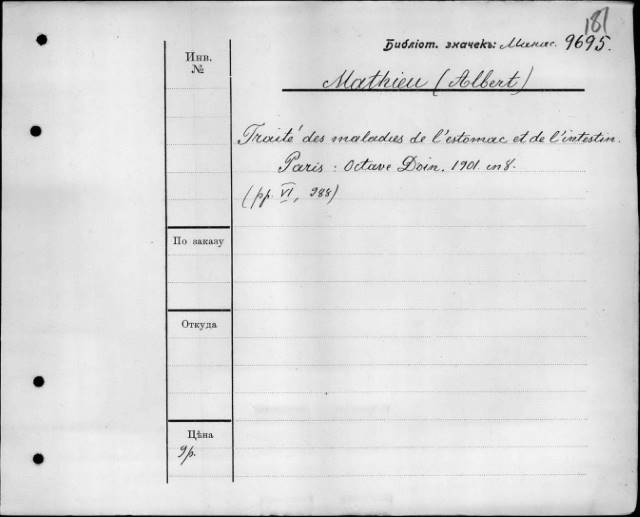 181
Библіот. значекъ: Манас. 9695.
Инв.
№
Mathieu (Albert)
Traité des maladies de l'estomac et de l'intestin.
Paris : Octave Doin. 1901. in 8.
(pp. VI, 988)
По заказу
Откуда
Цѣна
9р.